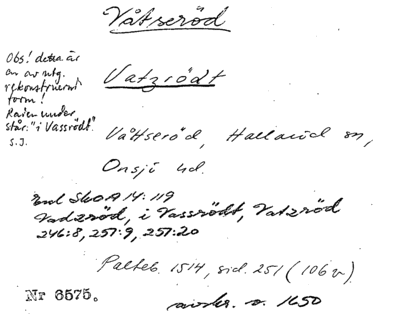 Våtseröd
Obs! detta är
en av utg.
rekonstruerad
form!
Raden under
står: "i Vassrödt"
S.J.
Vatzrödt
Våttseröd, Hallaröd sn,
Onsjö hd.
End SkoA 14: 119
Vadzröd, i Vassrödt, Vatzröd
246:8, 257:9, 257:20
Palteb. 1514, sid. 251 (106 v.)
Nr 6575.
avskr. o. 1650